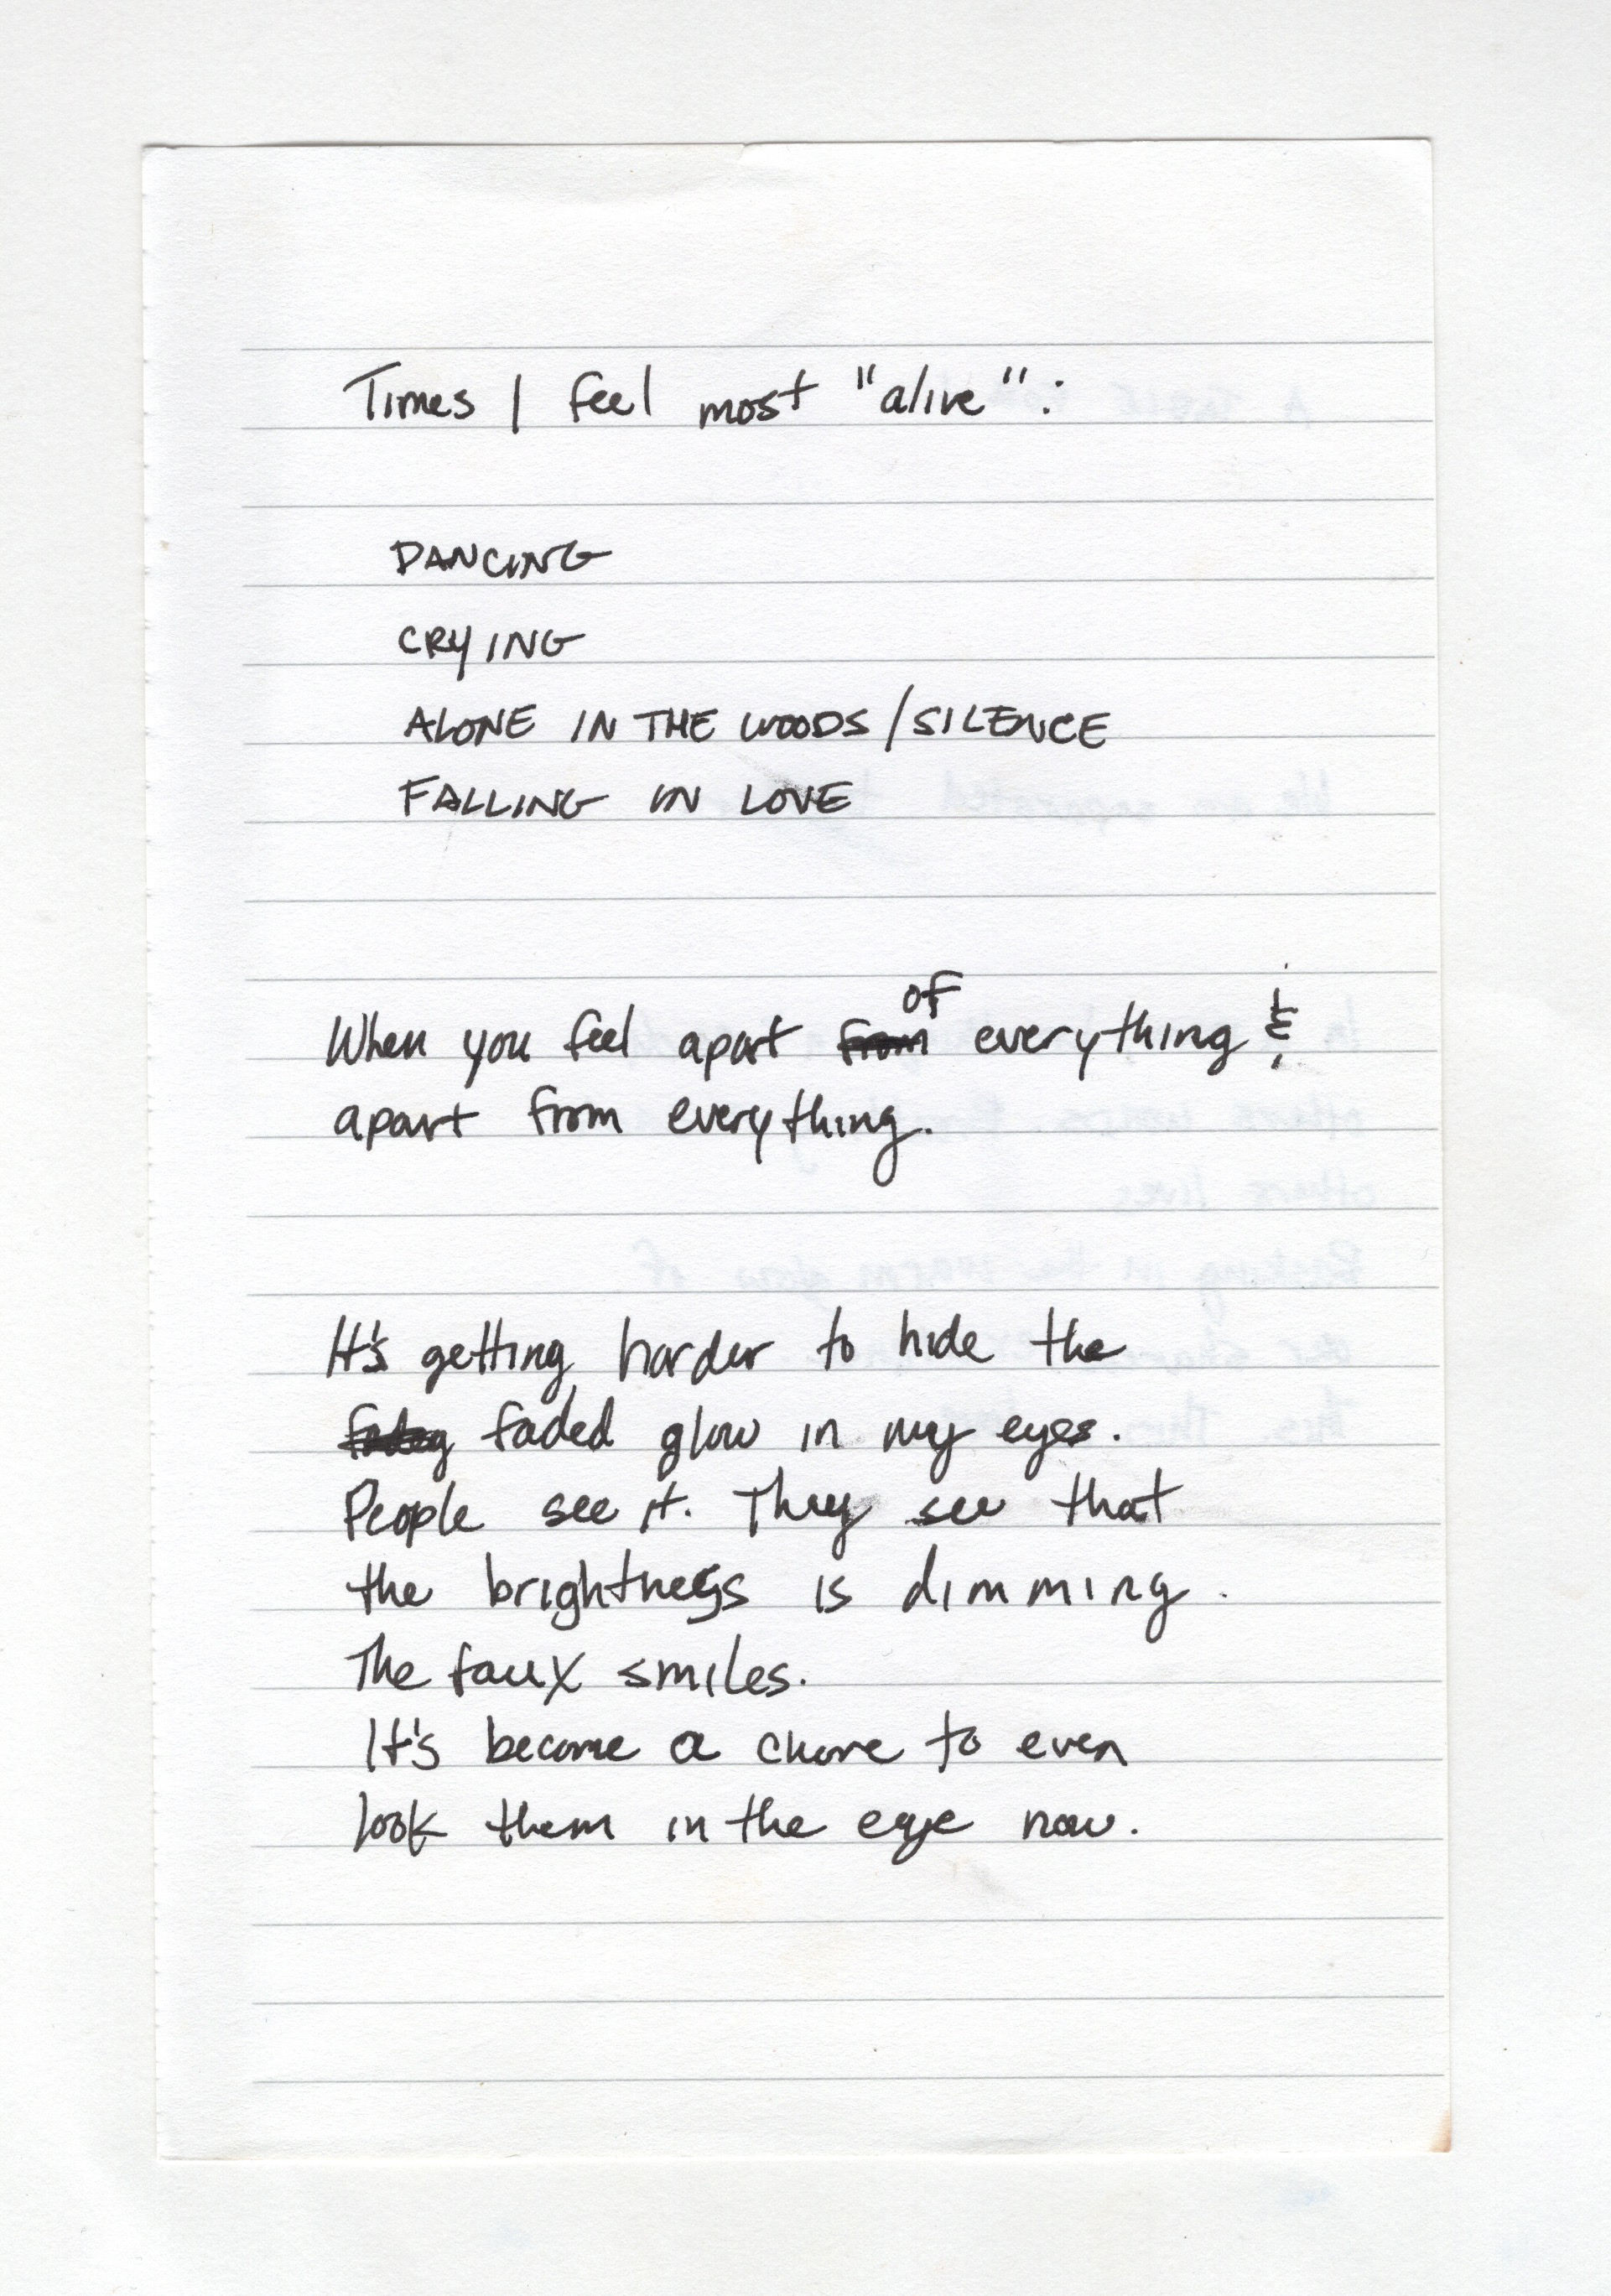 Times I feel most "alive":
DANCING
CRYING
ALONE IN THE WOODS/SILENCE
FALLING IN LOVE
of
When you feel apart from everything &
apart from everything.
It's getting harder to hide the
faded glow in my eyes.
People see it. They see that
the brightness is dimming.
The faux smiles.
It's become a chore to even
look them in the eye now.